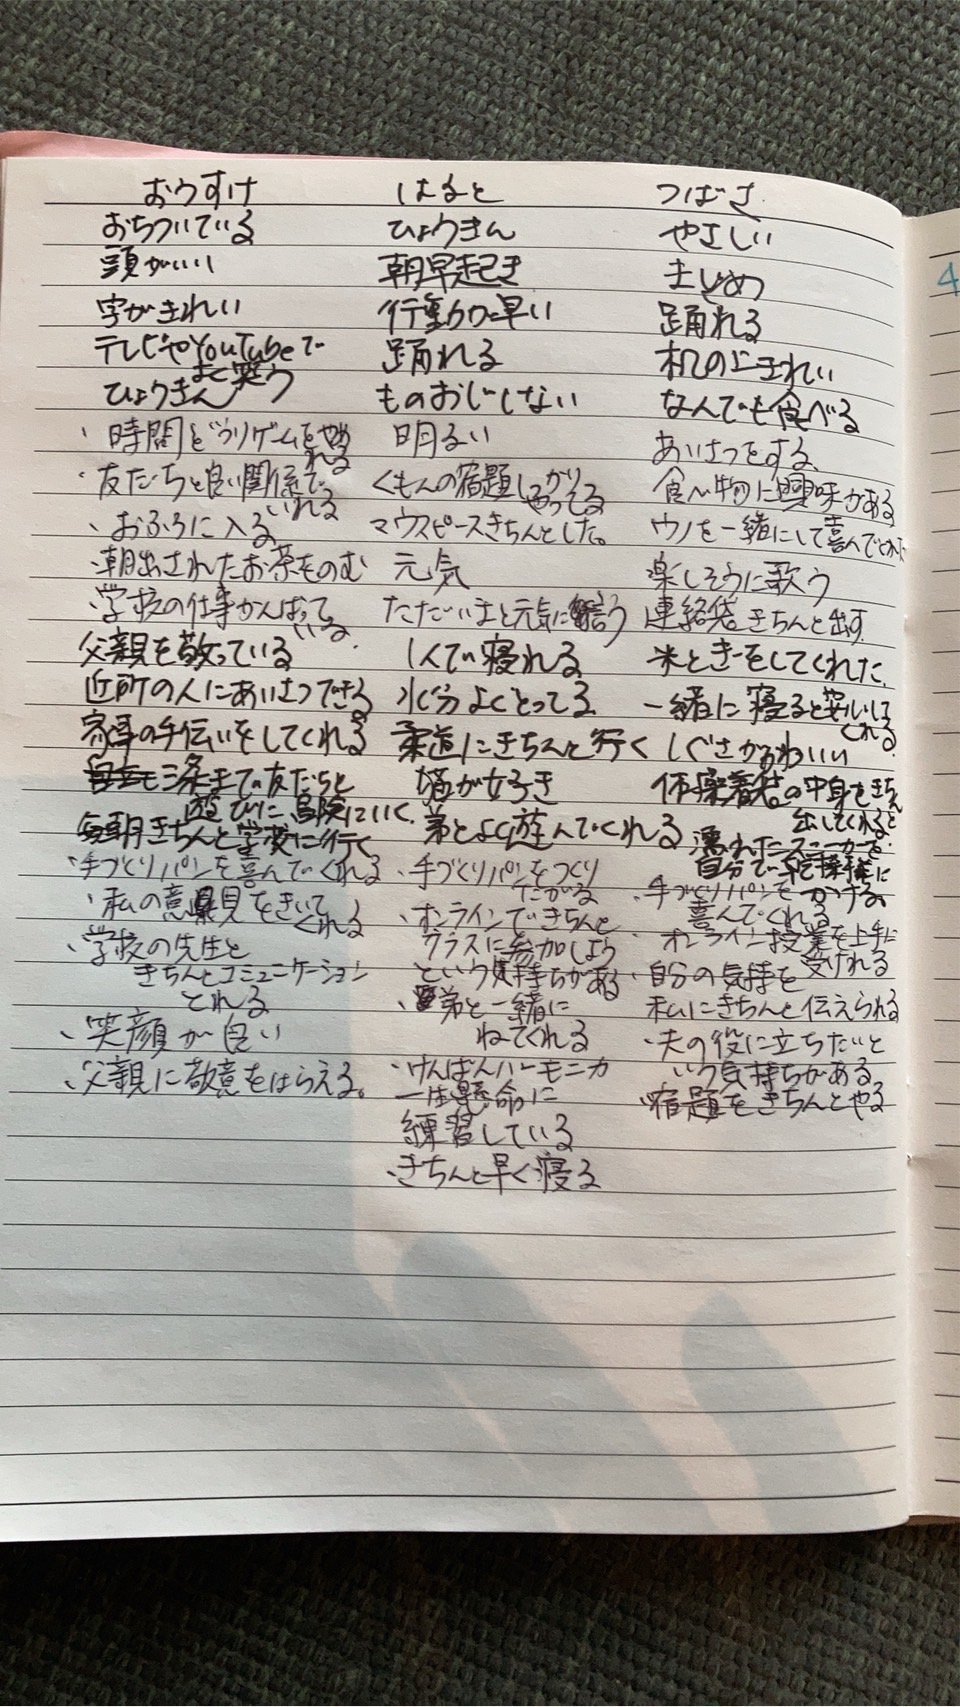 おうすけ
おちついている
頭がいい
字がきれい
テレビやYouTubeで
よく笑う
ひょうきん
時間どうりゲームをやめ
れる
・友だちと良い関係で
いれる
、おふろに入る
・朝出されたお茶をのむ
・学校の仕事がんばって
いる
父親を敬っている
近所の人にあいさつできる
家事の手伝いをしてくれる
三条までの友だちと
遊びに冒険にいく
毎朝きちんと学校に行く
・手づくりパンを喜んでくれる
・私の意見をきいて
くれる
・学校の先生と
きちんとコミュニケーション
とれる
、笑顔が良い
、父親に敬意をはらえる。
はると
ひょうきん
朝早起き
行動が早い
踊れる
ものおじしない
明るい
くもんの宿題しっかり
やってる
マウスピースきちんとした。
元気
ただいまと元気に言う
1人で寝れる
水分よくとってる
柔道にきちんと行く
が好き
弟とよく遊んでくれる
・手づくりパンをつくり
たがる
・オンラインできちんと
クラスに参加しよう
という気持ちがある
・弟と一緒に
ねてくれる
・けんばんハーモニカ
一生懸命に
練習している
・きちんと早く寝る
つばさ
やさしい
まじめ
踊れる
机の上きれい
なんでも食べる
あいさつをする、
食べ物に興味がある
ウノを一緒にして喜んでくれた
楽しそうに歌う
連絡袋きちんと出す
米とぎをしてくれた
一緒に寝ると安心して
くれる
しぐさがかわいい
体操着袋の中身をきちんと
出してくれる
濡れたスニーカーを
自分で乾燥機に
かける。
・手づくりパンを
喜んでくれる
オンライン授業を上手に
受けれる
・自分の気持を
私にきちんと伝えられる
・夫の役に立ちたいと
いう気持ちがある
・宿題をきちんとやる
4